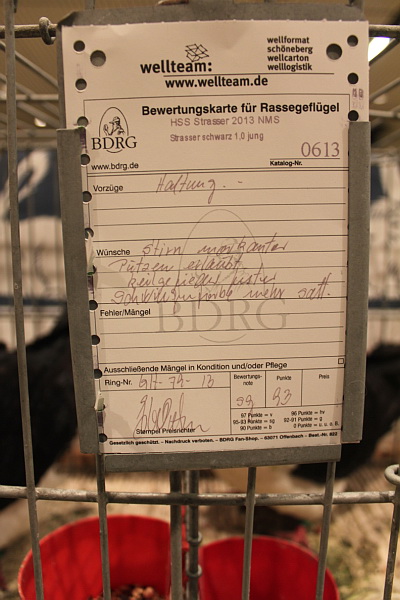 wellteam:
wellformat
schöneberg
wellcarton
welllogistik
www.wellteam.de
BDRG
www.bdrg.de
Bewertungskarte für Rassegeflügel
HSS Strasser 2013 NMS
Strasser schwarz 1,0 jung
Katalog-Nr. 0613
Vorzüge Haltung.-
Wünsche Stirn markanter
Putzen erlaubt
fester
mehr satt.
Fehler/Mängel
BDRG
Ausschließende Mängel in Kondition und/oder Pflege
Ring-Nr. 13
Bewertungs-
note
sg
Punkte
93
Preis
Stempel Preisrichter
97 Punkte = v 96 Punkte = hv
93-95 Punkte = sg 92-91 Punkte = g
90 Punkte = b 0 Punkte = u. u. o. B.
Gesetzlich geschützt. – Nachdruck verboten. – BDRG Fan-Shop. – 63071 Offenbach – Best.-Nr. 602